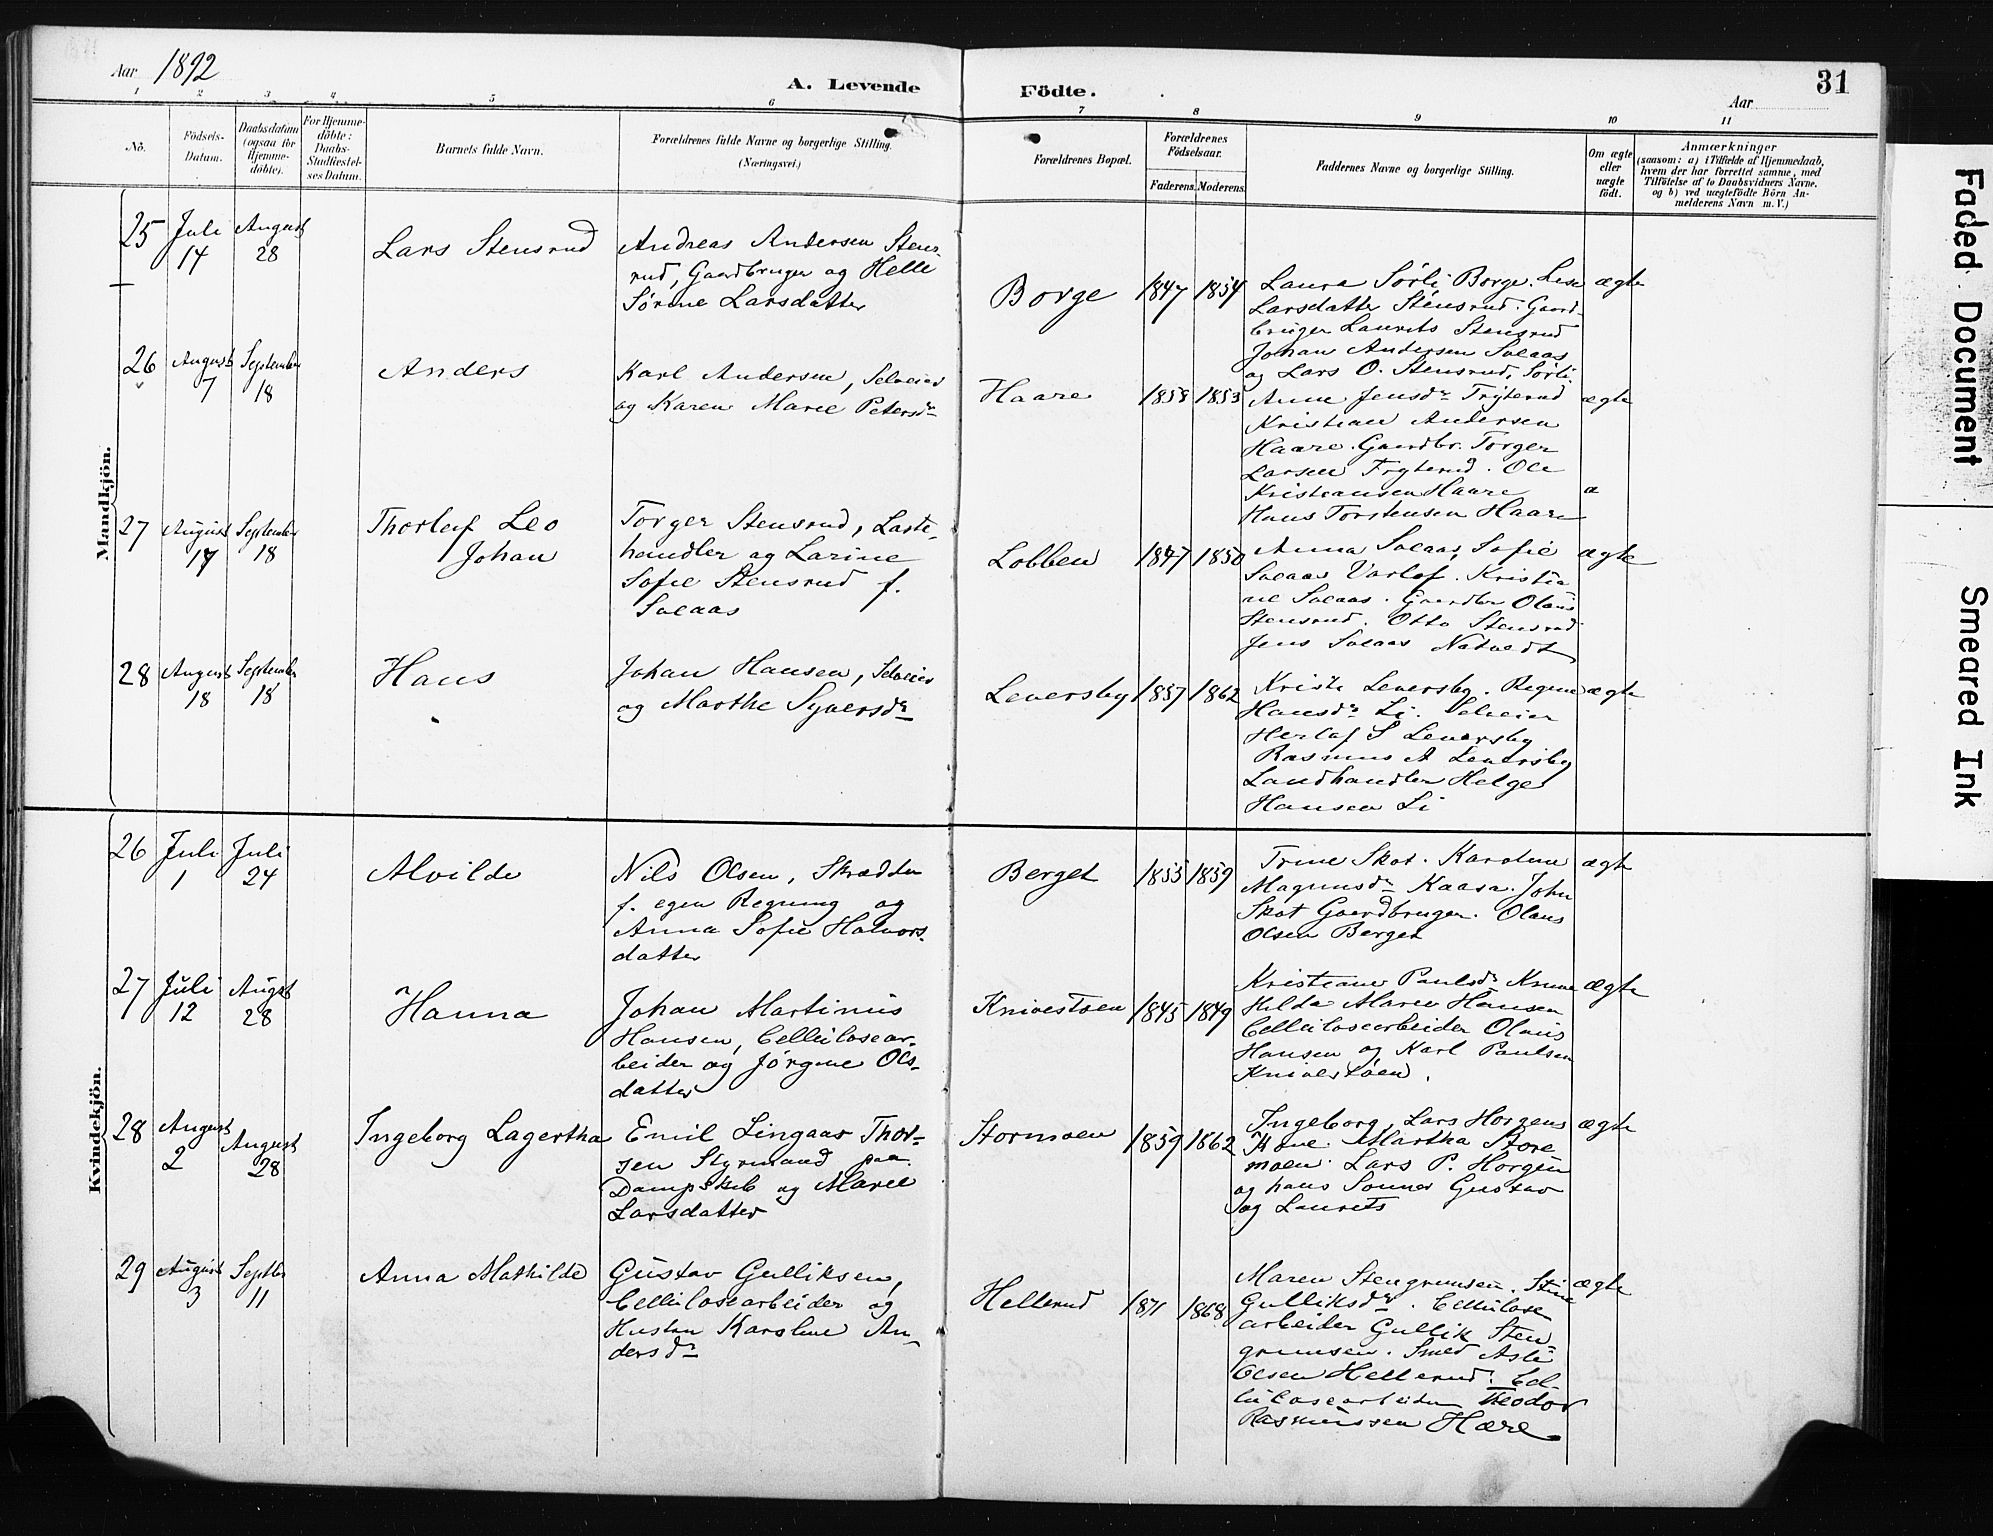 Aar 1892
A. Levende Födte.
Aar
31
1 2 3 4 5 6 7 8 9 10 11
No.
Födsels-Datum.
Daabsdatum (ogsaa för Hjemme-döbte).
For Hjemme-döbte: Daabs-Stadfæstel-ses Datum.
Barnets fulde Navn.
Forældrenes fulde Navne og borgerlige Stilling. (Næringsvei.)
Forældrenes Bopæl.
Forældrenes Födselsaar.
Faderens. Moderens.
Faddernes Navne og borgerlige Stilling.
Om ægte eller uægte födt.
Anmærkninger
(saasom: a) i Tilfælde af Hjemmedaab,
hvem der har forrettet samme, med
Tilföielse af to Daabsvidners Navne.
og b) ved uægtefödte Börn An-
melderens Navn m. V.)
Mandkjön.
25 Juli 14 August 28 Lars Stensrud
Andreas Andersen Stens-
rud, Gaardbruger og Helle
Sørine Larsdatter
Borge 1847 1854
Laura Sørli Borge. Lise
Larsdatter Stensrud. Gaard-
bruger Laurits Stensrud
Johan Andersen Solaas
og Lars O. Stensrud, Sørli.
ægte
26 August 7 September 18 Anders
Karl Andersen, Selveier
og Karen Marie Petersdr
Haare 1858 1853
Anne Jensdr Fryterud
Kristian Andersen
Haare. Gaardbr. Torger
Larsen Fryterud. Ole
Kristiansen Haare
Hans Torstensen Haare
ægte
27 August 17 September 18 Thorleif Leo
Johan
Torger Stensrud, Laste-
handler og Larine
Sofie Stensrud f.
Solaas
Lobben 1847 1850
Anna Solaas, Sofie
Solaas Varlof. Kristia
ne Solaas. Gaardbr Olaus
Stensrud. Otto Stensrud
Jens Solaas Natvedt
ægte
28 August 18 September 18 Hans
Johan Hansen, Selveier
og Marthe Syversdr
Leversby 1857 1862
Kristi Leversby. Regine
Hansdr Li. Selveier
Herlof S Leversby
Rasmus A Leversby
Landhandler Helge
Hansen Li
ægte
Kvindekjön.
26 Juli 1 Juli 24 Alvilde
Nils Olsen, Skrædder
f. egen Regning og
Anna Sofie Halvors-
datter
Berget 1855 1859
Trine Skot. Karoline
Magnusdr Kaasa. John
Skot Gaardbruger. Olaus
Olsen Berget
ægte
27 Juli 12 Augst 28 Hanna
Johan Martinius
Hansen, Cellulosear-
beider og Jørgine Ols-
datter
Knivestøen 1845 1849
Kristiane Paulsdr
Hilda Marie Hansen
Cellulosearbeider Olaus
Hansen og Karl Paulsen
Knivestøen.
ægte
28 August 2 August 28 Ingeborg Lagertha
Emil Lingaas Thor-
sen Styrmand paa
Dampskib og Marie
Larsdatter
Stormoen 1859 1862
Ingeborg, Lars Horgens
Kone. Martha Store
moen. Lars P. Horgen
og hans Sønner Gustav
og Laurits
ægte
29 August 3 Septbr 11 Anna Mathilde
Gustav Gulliksen,
Cellulosearbeider og
Hustru Karoline An-
dersdr
Hellerud 1871 1868
Maren Stengrimsen. Stine
Gulliksdr. Cellulose
arbeider Gullik Sten-
grimsen. Smed Asle
Olsen Hellerud. Cel-
lulosearbeider Theodor
Rasmussen Hære
ægte
Faded Document
Smeared Ink